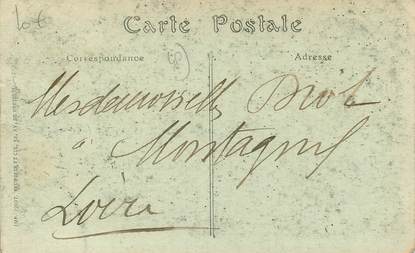 Carte Postale
Correspondance
Adresse
Mesdemoiselles
à Montagny
Loire